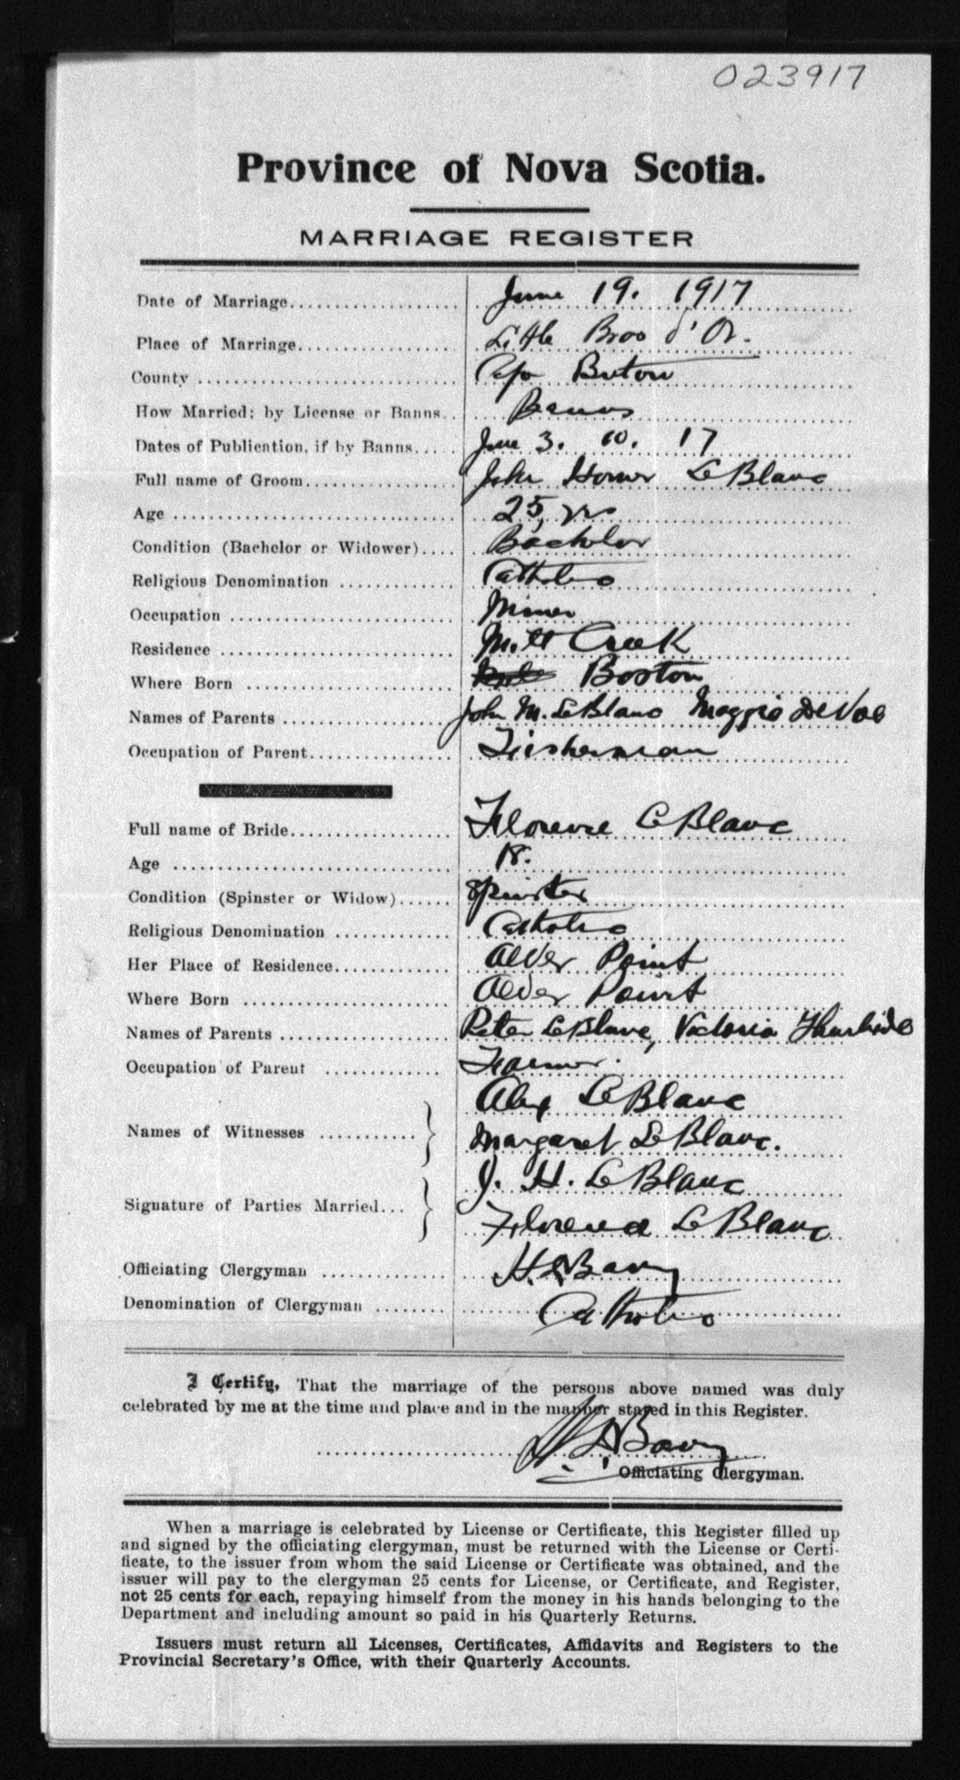 023917
Province of Nova Scotia.
MARRIAGE REGISTER
Date of Marriage June 19. 1917
Place of Marriage Little Bras d'Or.
County Cape Breton
How Married; by License or Banns Banns
Dates of Publication, if by Banns June 3. 10. 17
Full name of Groom John Homer LeBlanc
Age 25 yrs
Condition (Bachelor or Widower) Bachelor
Religious Denomination Catholic
Occupation Miner
Residence Mill Creek
Where Born Boston
Names of Parents John M. LeBlanc Maggie DeVoe
Occupation of Parent Fisherman
Full name of Bride Florence LeBlanc
Age 18.
Condition (Spinster or Widow) Spinster
Religious Denomination Catholic
Her Place of Residence Alder Point
Where Born Alder Point
Names of Parents Peter LeBlanc, Victoria
Occupation of Parent Farmer.
Names of Witnesses Alex LeBlanc
Margaret LeBlanc.
Signature of Parties Married J. H. LeBlanc
Florence LeBlanc
Officiating Clergyman
Denomination of Clergyman Catholic
I Certify, That the marriage of the persons above named was duly
celebrated by me at the time and place and in the manner stated in this Register.
Officiating Clergyman.
When a marriage is celebrated by License or Certificate, this Register filled up
and signed by the officiating clergyman, must be returned with the License or Certi-
ficate, to the issuer from whom the said License or Certificate was obtained, and the
issuer will pay to the clergyman 25 cents for License, or Certificate, and Register,
not 25 cents for each, repaying himself from the money in his hands belonging to the
Department and including amount so paid in his Quarterly Returns.
Issuers must return all Licenses, Certificates, Affidavits and Registers to the
Provincial Secretary's Office, with their Quarterly Accounts.